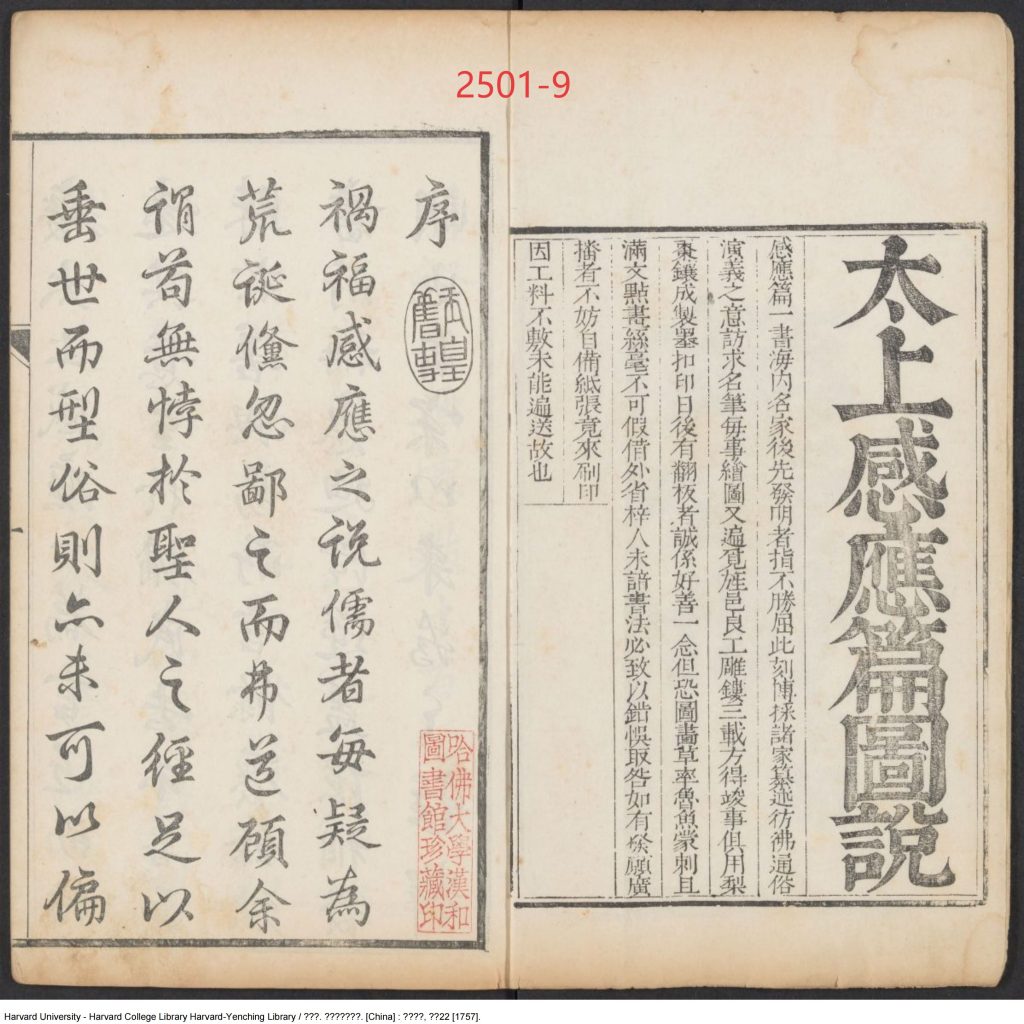 2501-9
太上感應篇圖說
感應篇一書海内名家後先發明者指不勝屈此刻博採諸家纂述彷彿通俗
演義之意訪求名筆每事繪圖又遍覓旌邑良工雕鏤三載方得竣事俱用梨
棗鑲成製墨扣印日後有翻板者誠係好善一念但恐圖畵草率魯魚䝉刺且
滿文點畫絲毫不可假借外省梓人未諳書法必致以錯悞取咎如有發願廣
播者不妨自備紙張竟來刷印
因工料不敷未能遍送故也
序
禍福感應之說儒者每疑為
荒誕儻忽鄙之而弗道顧余
謂苟無悖於聖人之經足以
垂世而型俗則亦未可以偏
哈佛大學漢和
圖書館珍藏印
Harvard University - Harvard College Library Harvard-Yenching Library / ???. ???????. [China] : ????, ??22 [1757].